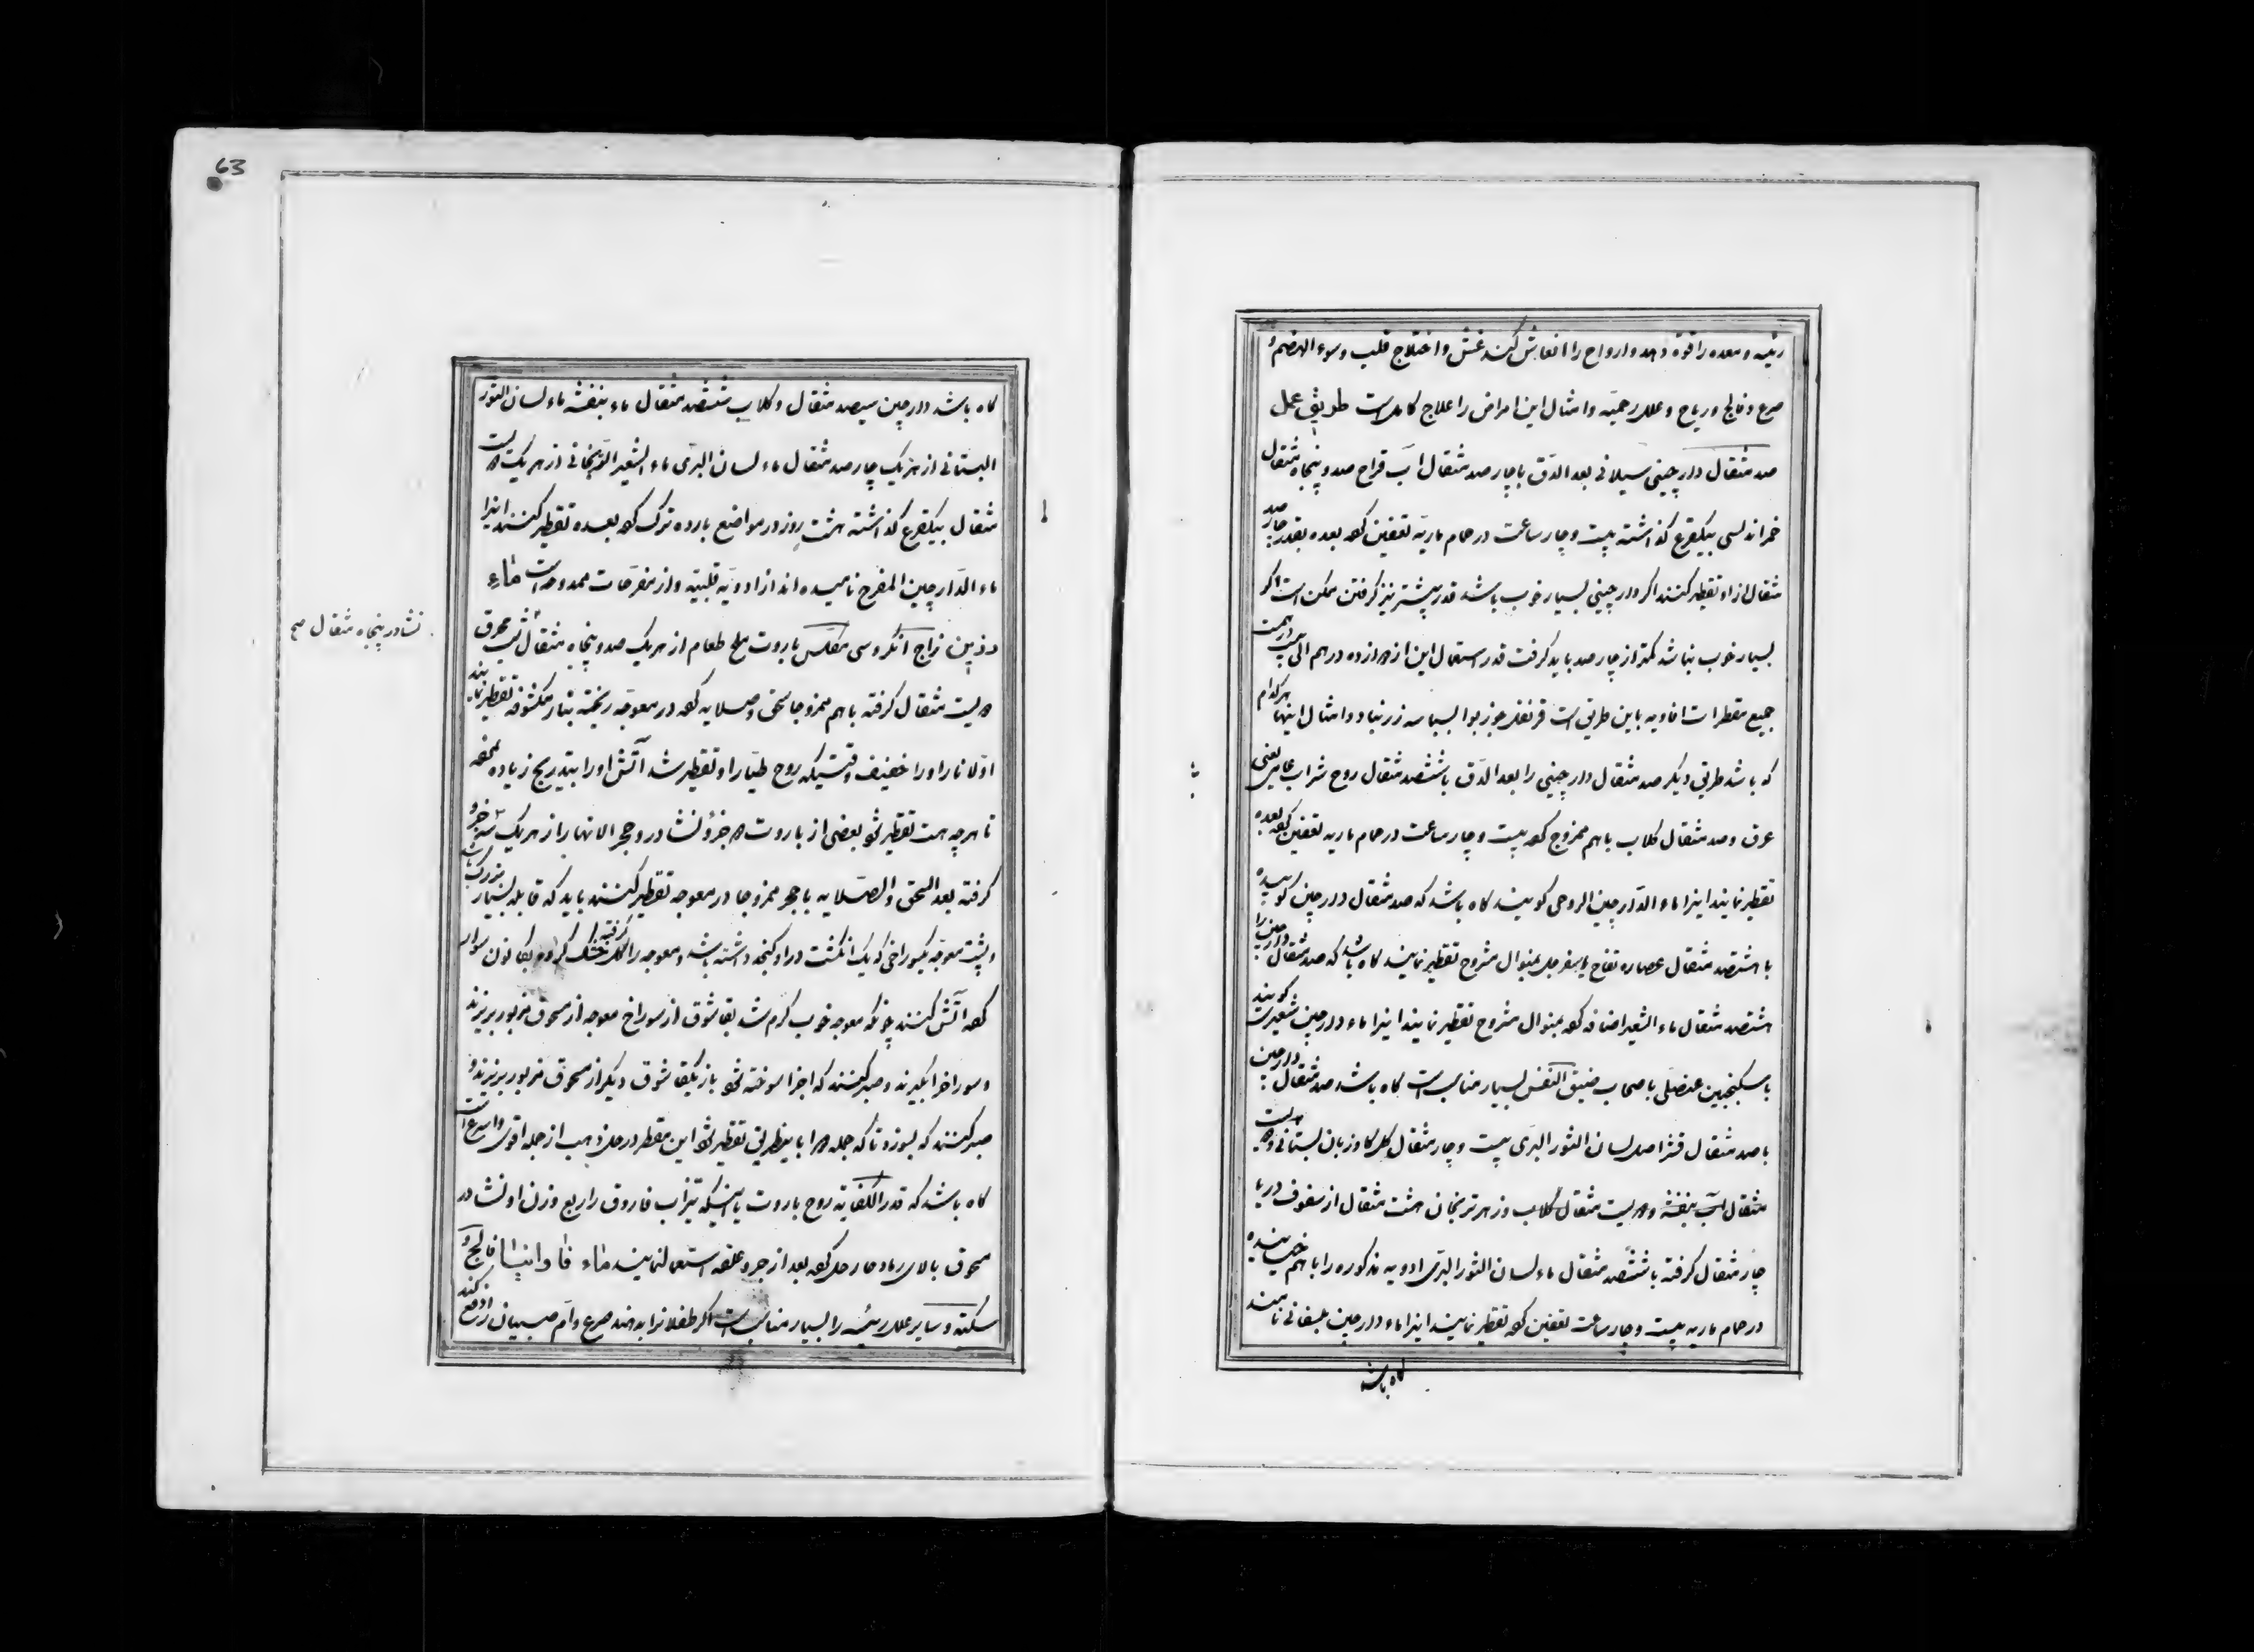 رئیسه و معده را قوة دهد و ارواح را انعاش کند غشی و اختلاج قلب و سوء الهضم و
صرع و فالج و ریاح و علل رحمیّه و امثال این امراض را علاج کامل است طریق عمل
صد مثقال دارچینی سیلانی بعد الدّق با چارصد مثقال آب قراح صد و پنجاه مثقال
خمر اندلسی بیکقرع گذاشته بیست و چار ساعت در حمام ماریّه تعفین کرده بعده بقدر چارصد
مثقال از او تقطیر کنند اگر دارچینی بسیار خوب باشد قدر بیشتر نیز گرفتن ممکن است اگر
بسیار خوب نباشد کمتر از چارصد باید گرفت قدر استعمال این از دوازده درهم الی بیست درهم
جمیع مقطرات افاویه باین طریق است قرنفل جوزبوا بسباسه زرنباد و امثال اینها هر کدام
که باشد طریق دیگر صد مثقال دارچینی را بعد الدّق با ششصد مثقال روح شراب عالی یعنی
عرق و صد مثقال گلاب با هم ممزوج کرده بیست و چار ساعت در حمام ماریه تعفین کرده بعده
تقطیر نمایند اینرا ماء الدّارچین الروحی گویند گاه باشد که صد مثقال دارچین کوبیده
با هشتصد مثقال عصاره تفاح یا سفرجل بمنوال مشروح تقطیر نمایند گاه باشد که صد مثقال دارچین را
هشتصد مثقال ماء الشعیر اضافه کرده بمنوال مشروح تقطیر نمایند اینرا ماء دارچین شعیرت گویند
با سکنجبین عنصلی باصحاب ضیق النفس بسیار مناسب است گاه باشد صد مثقال دارچین
با صد مثقال قشر اصل لسان الثور البرّی بیست و چار مثقال گل گاوزبان بستانی دویست
مثقال آب بنفشه دویست مثقال گلاب و زهر ترنجان هشت مثقال از سفوف دریا
چار مثقال گرفته با ششصد مثقال ماء لسان الثور البرّی ادویه مذکوره را با هم خیسانیده
در حمام ماریه بیست و چار ساعت تعفین کرده تقطیر نمایند اینرا ماء دارچین بلسقانی نامند
گاه باشد
63
گاه باشد دارچین سیصد مثقال و گلاب ششصد مثقال ماء بنفشه ماء لسان الثور
البستانی از هر یک چارصد مثقال ماء لسان البرّی ماء الشعیر الترنجانی از هر یک دویست
مثقال بیکقرع گذاشته هشت روز در مواضع بارده ترک کرده بعده تقطیر کنند اینرا
ماء الدّارچین المفرح نامیده اند از ادویّه قلبیّه و از مفرّحات ممدوحه است ماء
زاج انگروسی مکلس باروت ملح طعام از هر یک صد و پنجاه مثقال شب محرق
نشادر پنجاه مثقال صح
دویست مثقال گرفته با هم ممزوجا سحق و صلایه کرده در معوجّه ریخته بنار مکشوفه تقطیر نمایند
اوّلا نار او را خفیف وقتیکه روح طیّار او تقطیر شد آتش او را بتدریج زیاده کرده
تا هرچه هست تقطیر شود بعضی از باروت دو جزؤ نشادر و حجر الانهار از هر یک سه جزو
گرفته بعد السحق والصّلایه با حجر ممزوجا در معوجه تقطیر کنند باید که قابله بسیار بزرگ باشد
و پشت معوجّه یکسوراخی که یک انگشت در او گنجد داشته باشد و معوجه را گل خشک گرفته بکانون سوار
کرده آتش کنند چونکه معوجه خوب گرم شد بقاشوق از سوراخ معوجه از مسحوق مزبور بریزند
و سوراخرا بگیرند و صبر کنند که اجزا سوخته شود باز یکقاشوق دیگر از مسحوق مزبور بریزند و
صبر کنند که بسوزد تا که جمله دوا باینطریق تقطیر شود این مقطر در حل ذهب از جمله اقوی و اسرع است
گاه باشد که قدر الکفایة روح باروت یا اینکه تیزاب فاروق را ربع وزن او نشادر
مسحوق بالای رماد حار حل کرده بعد از جر و علقه استعمال نمایند ماء فاوانیا فالج و
سکته و سایر علل رئیسه را بسیار مناسب است اگر طفلانرا بدهند صرع و امّ صبیان را دفع کند